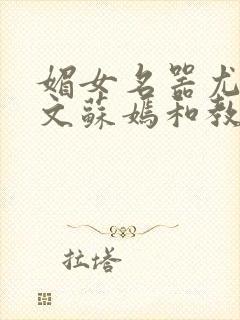 媚女名器尤
文蘇媽和教
拉塔